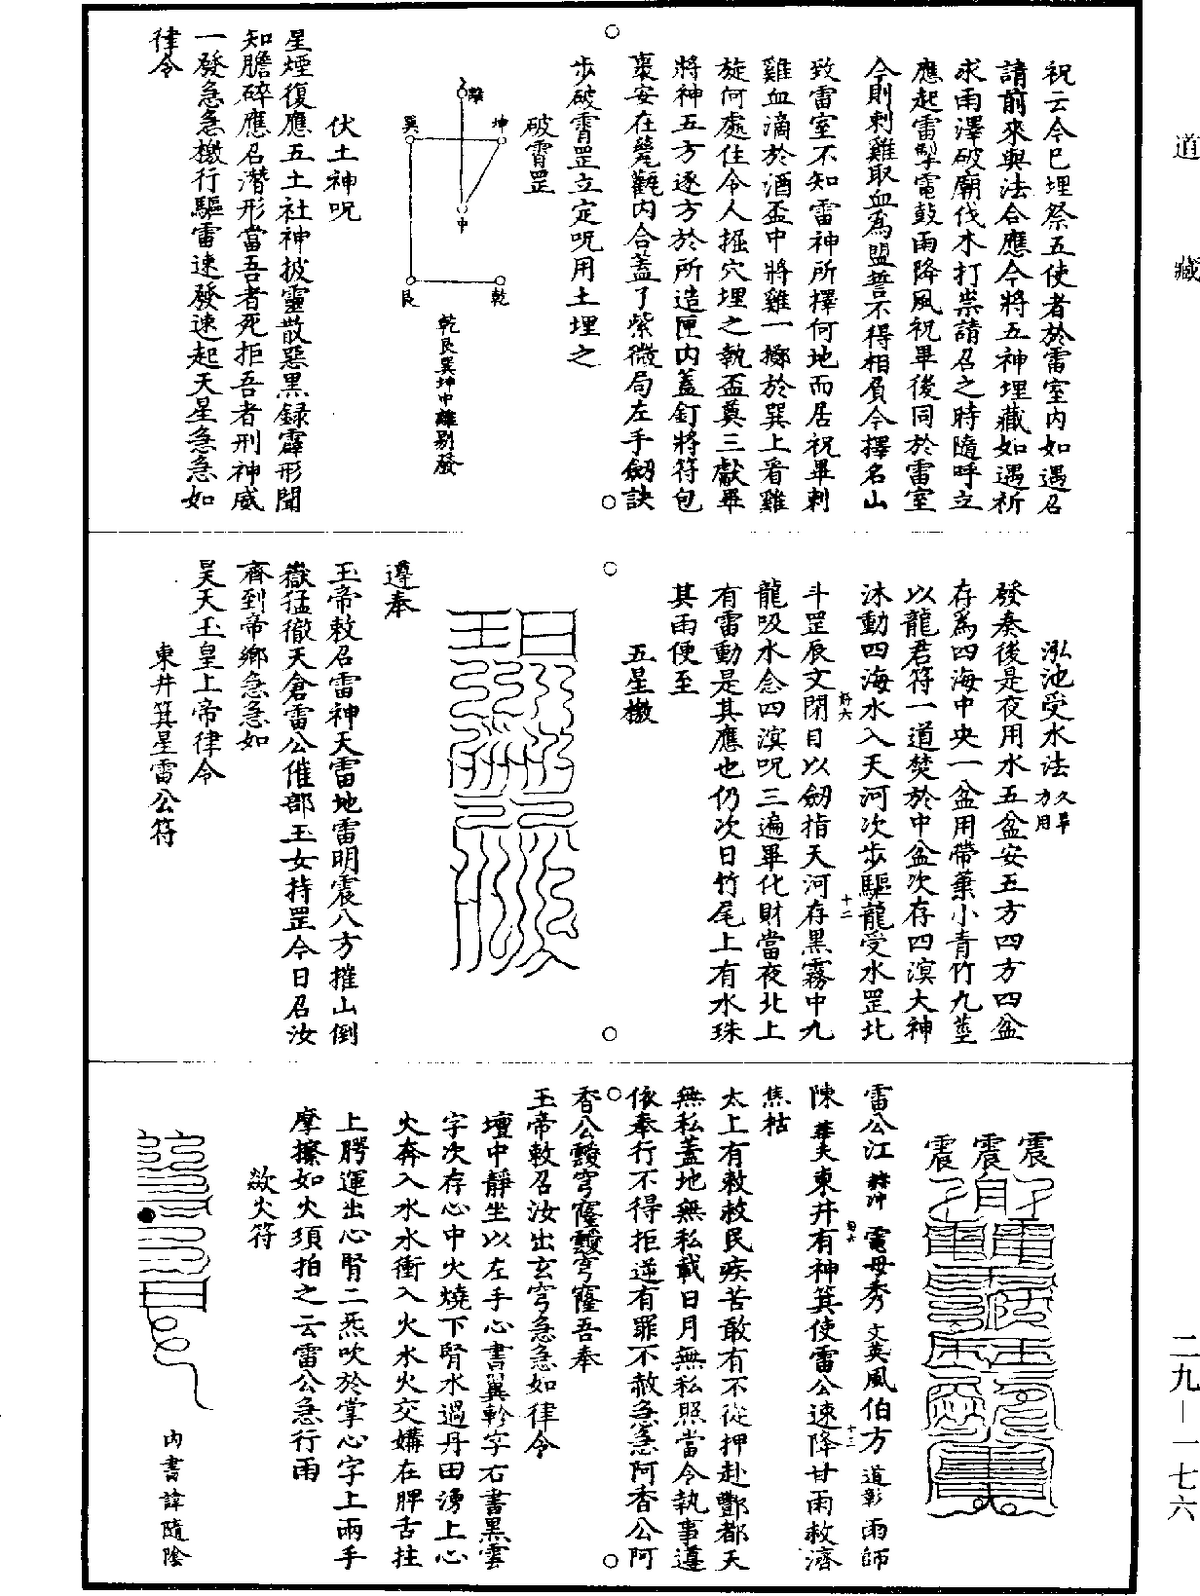 道藏
祝云今巳埋祭五使者於雷室內如遇召
請前來與法合應今將五神埋藏如遇祈
求雨澤破廟伐木打祟請召之時隨呼立
應起雷掣電鼓雨降風祝畢後同於雷室
令則刺雞取血爲盟誓不得相負令擇名山
致雷室不知雷神所擇何地而居祝畢刺
雞血滴於酒盃中將雞一擲於巽上看雞
旋何處住令人掘穴埋之執盃奠三獻畢
將神五方逐方於所造匣內蓋釘將符包
棗安在甕觀內合蓋了紫微局左手劒訣
步破霄罡立定呪用土埋之
破霄罡
離
坤
巽
中
艮
乾
乾艮巽坤中離剔發
伏土神呪
星煙復應五土社神披靈散惡黑録霹形聞
知膽碎應召潛形當吾者死拒吾者刑神威
一發急急檄行驅雷速發速起天星急急如
律令
泓池受水法久旱方用
發奏後是夜用水五盆安五方四方四盆
存爲四海中央一盆用帶葉小青竹九莖
以龍君符一道焚於中盆次存四溟大神
沐動四海水入天河次步驅龍受水罡北
十二
斗罡辰文閉目以劒指天河存黑霧中九
龍吸水念四溟呪三遍畢化財當夜北上
有雷動是其應也仍次日竹尾上有水珠
其雨便至
五星檄
遵奉
玉帝敕召雷神天雷地雷明震八方摧山倒
嶽猛徹天倉雷公催部玉女持罡今日召汝
齊到帝鄉急急如
昊天玉皇上帝律令
東井箕星雷公符
震震震
雷公江赫冲電母秀文英風伯方道彰雨師
十三
陳華夫東井有神箕使雷公速降甘雨救濟
焦枯
太上有敕救民疾苦敢有不從押赴酆都天
無私蓋地無私載日月無私照當令執事遵
依奉行不得拒逆有罪不赦急急阿香公阿
香公䨴穹窿䨴穹窿吾奉
玉帝敕召汝出玄穹急急如律令
壇中靜坐以左手心書翼軫字右書黑雲
字次存心中火燒下腎水過丹田湧上心
火奔入水水衝入火水火交媾在脾舌拄
上腭運出心腎二炁吹於掌心字上兩手
摩擦如火須拍之云雷公急行雨
歘火符
內書諱隨陰
二九—一七六